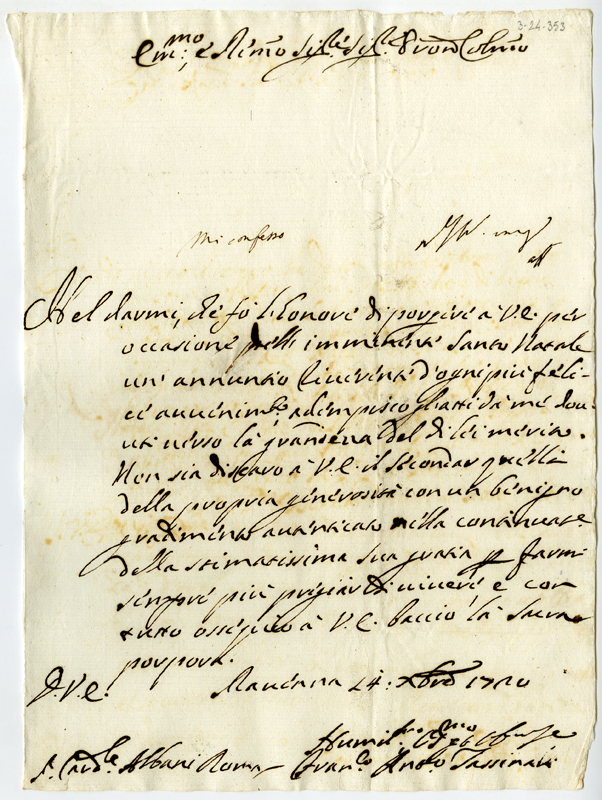 3-24-353
Em:mo e R.mo Sig.re Sig.re Pron Colmo
Mi confesso
Nel darmi, che fò l'honore di porgere à V.E. per
occasione dell' imminente Santo Natale
un' annuntio riverente d'ogni più feli-
ce avvenim.to, adempisco gl'atti da me dov-
uti verso la grandezza del di lei merito.
Non sia discaro à V.E. il secondar quelli
della propria generosità con un benigno
gradimento autenticato nella continuat.e
della stimatissima sua gratia per farmi
sempre più pregiar di vivere, e con
tutto ossequio à V.E. baccio la sacra
porpora.
D.V.E.
Ravenna 24: Xbre 1720
Humil.mo
S.r Card.le Albani Roma
Fran.co Ant.o Tassinari